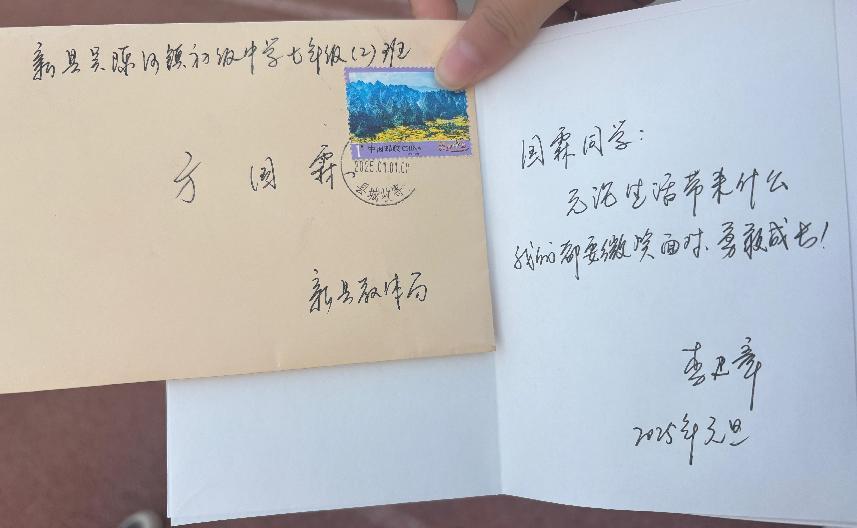 新县吴陈河镇初级中学七年级(2)班
方国霖
新县教体局
中国邮政 CHINA
2025.01.01.
国霖同学：
无论生活带来什么
我们都要微笑面对、勇敢成长！
2025年元旦